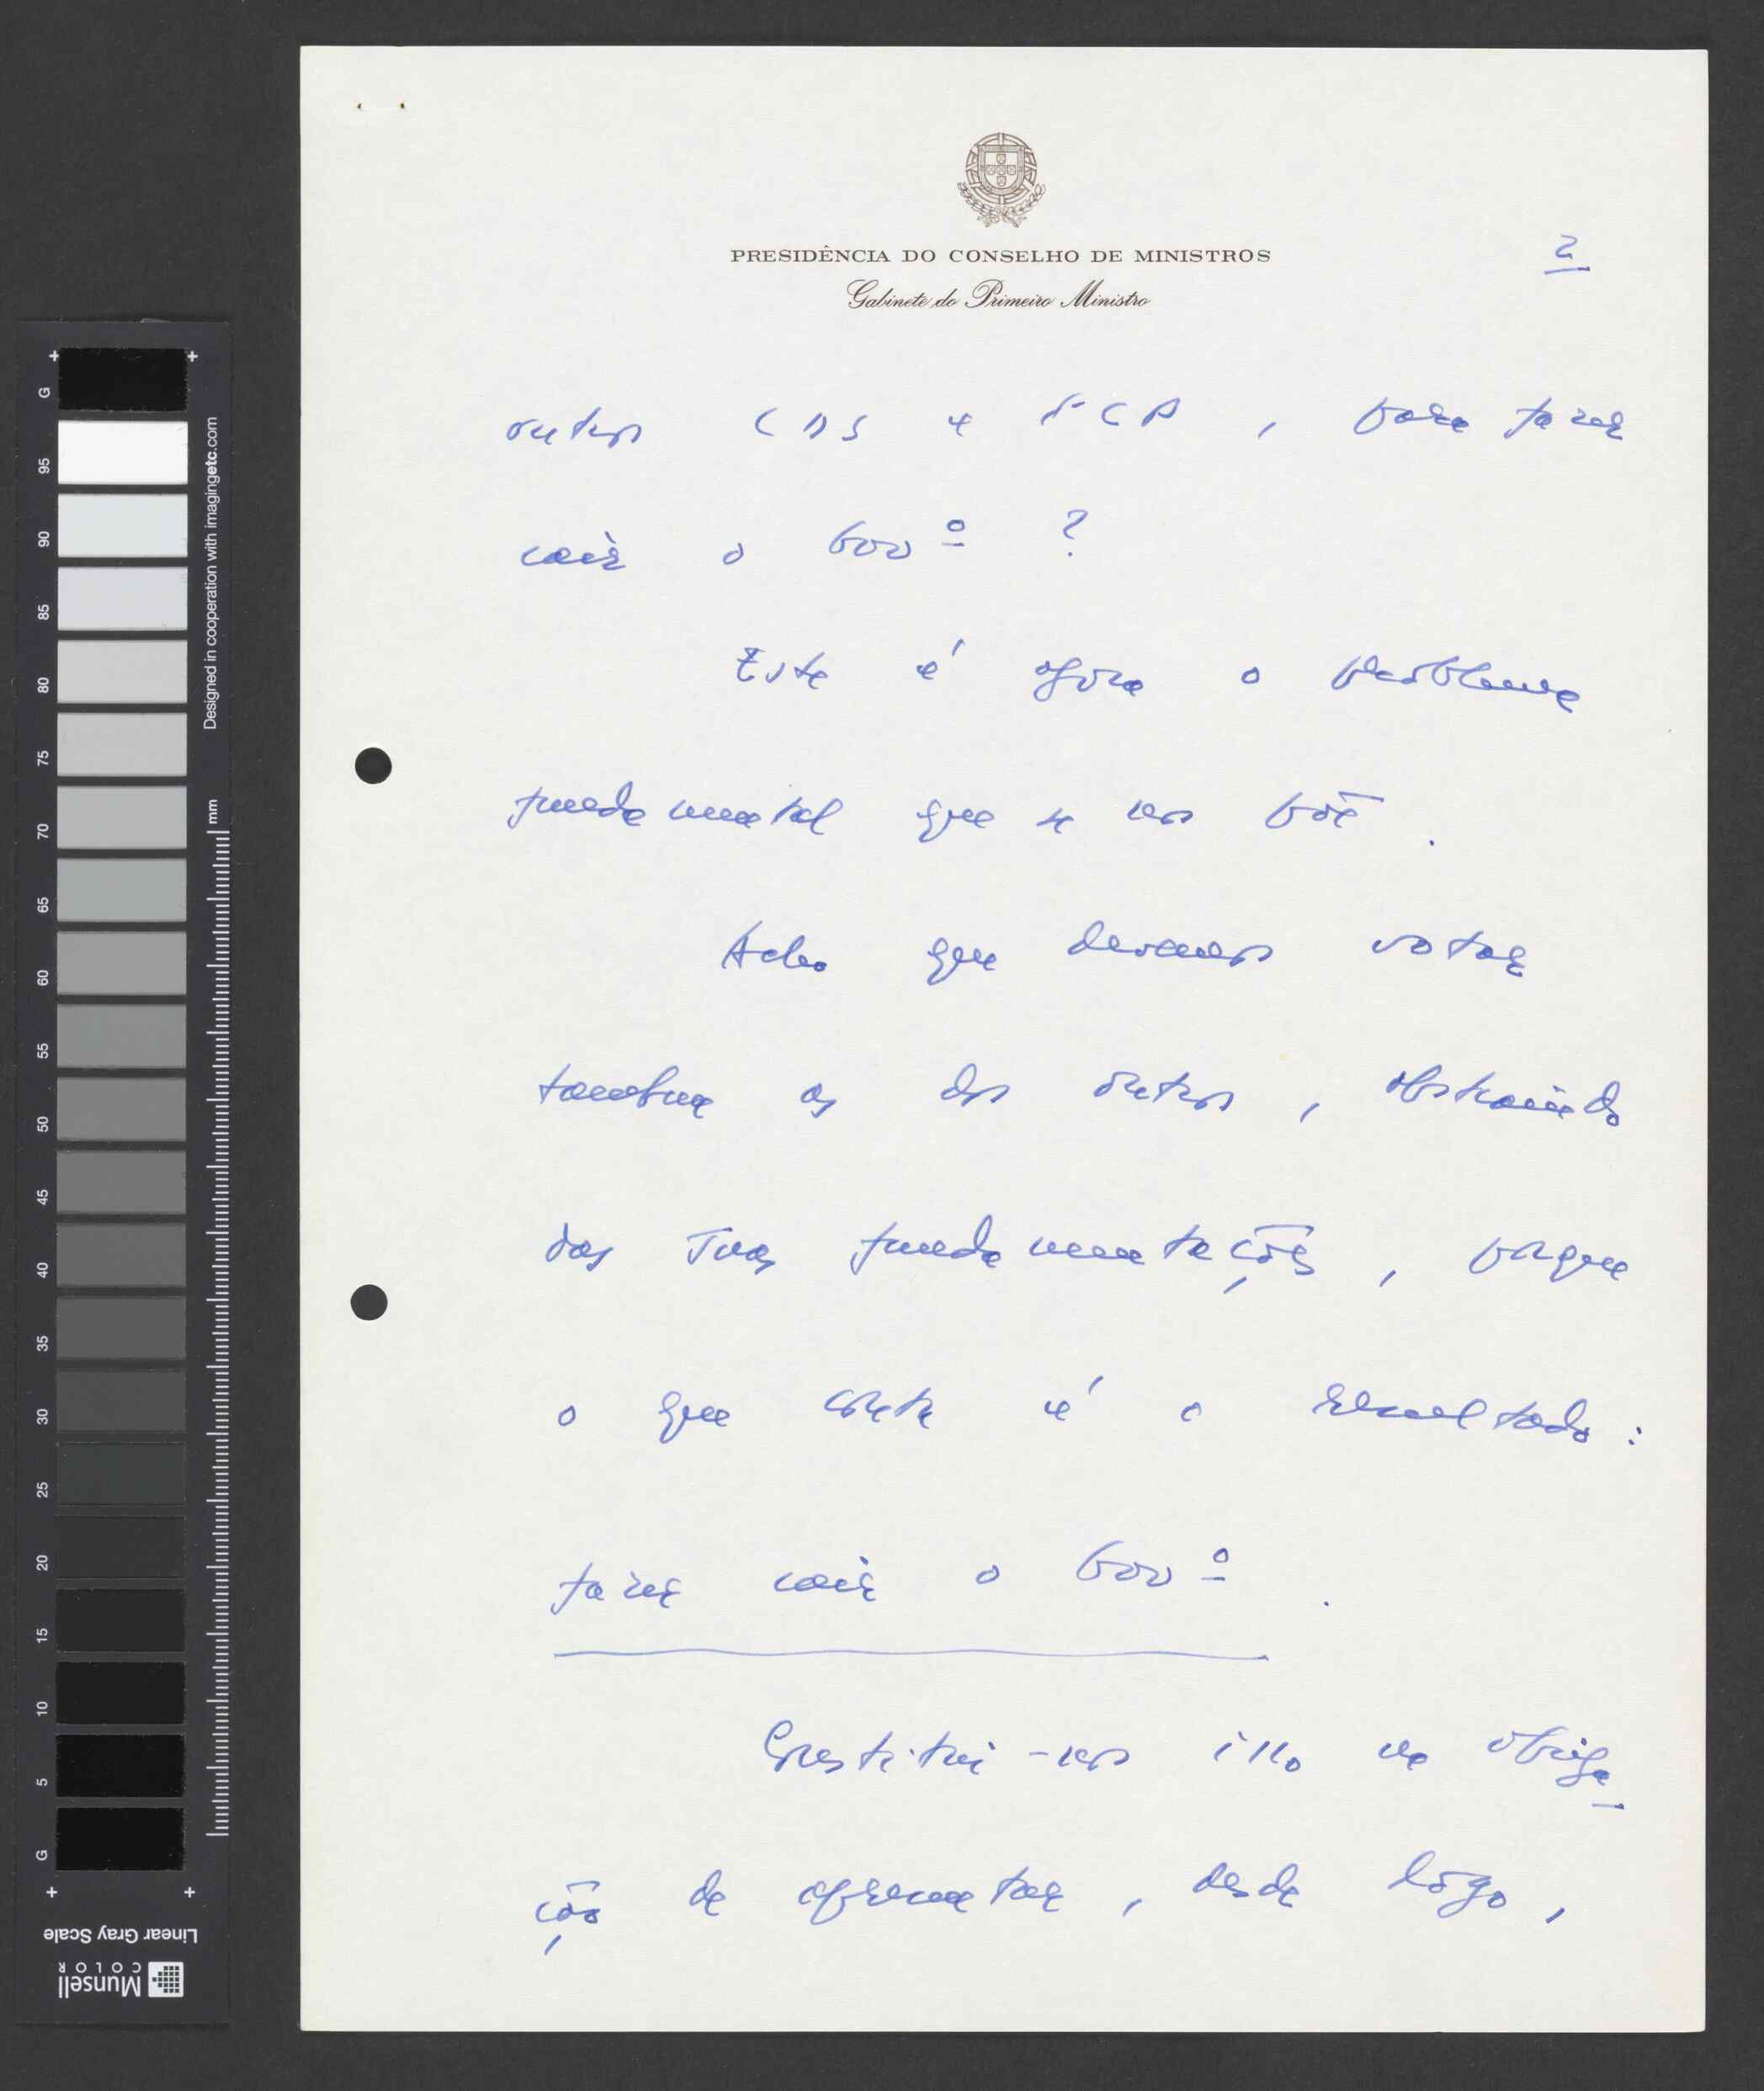 PRESIDÊNCIA DO CONSELHO DE MINISTROS
Gabinete do Primeiro Ministro
2
outros CDS e PCP, para fazer
cair o Govº ?
Este é agora o problema
fundamental que se nos põe.
Acho que devemos votar
também as dos outros, abstraindo
das suas fundamentações, porque
o que conta é o resultado :
fazer cair o Govº.
Constitui-nos isso na obriga-
ção de apresentar, desde logo,
G
95
90
85
80
75
70
65
60
55
50
45
40
35
30
25
20
15
10
5
G
Designed in cooperation with imagingetc.com
mm
Linear Gray Scale
Munsell
COLOR